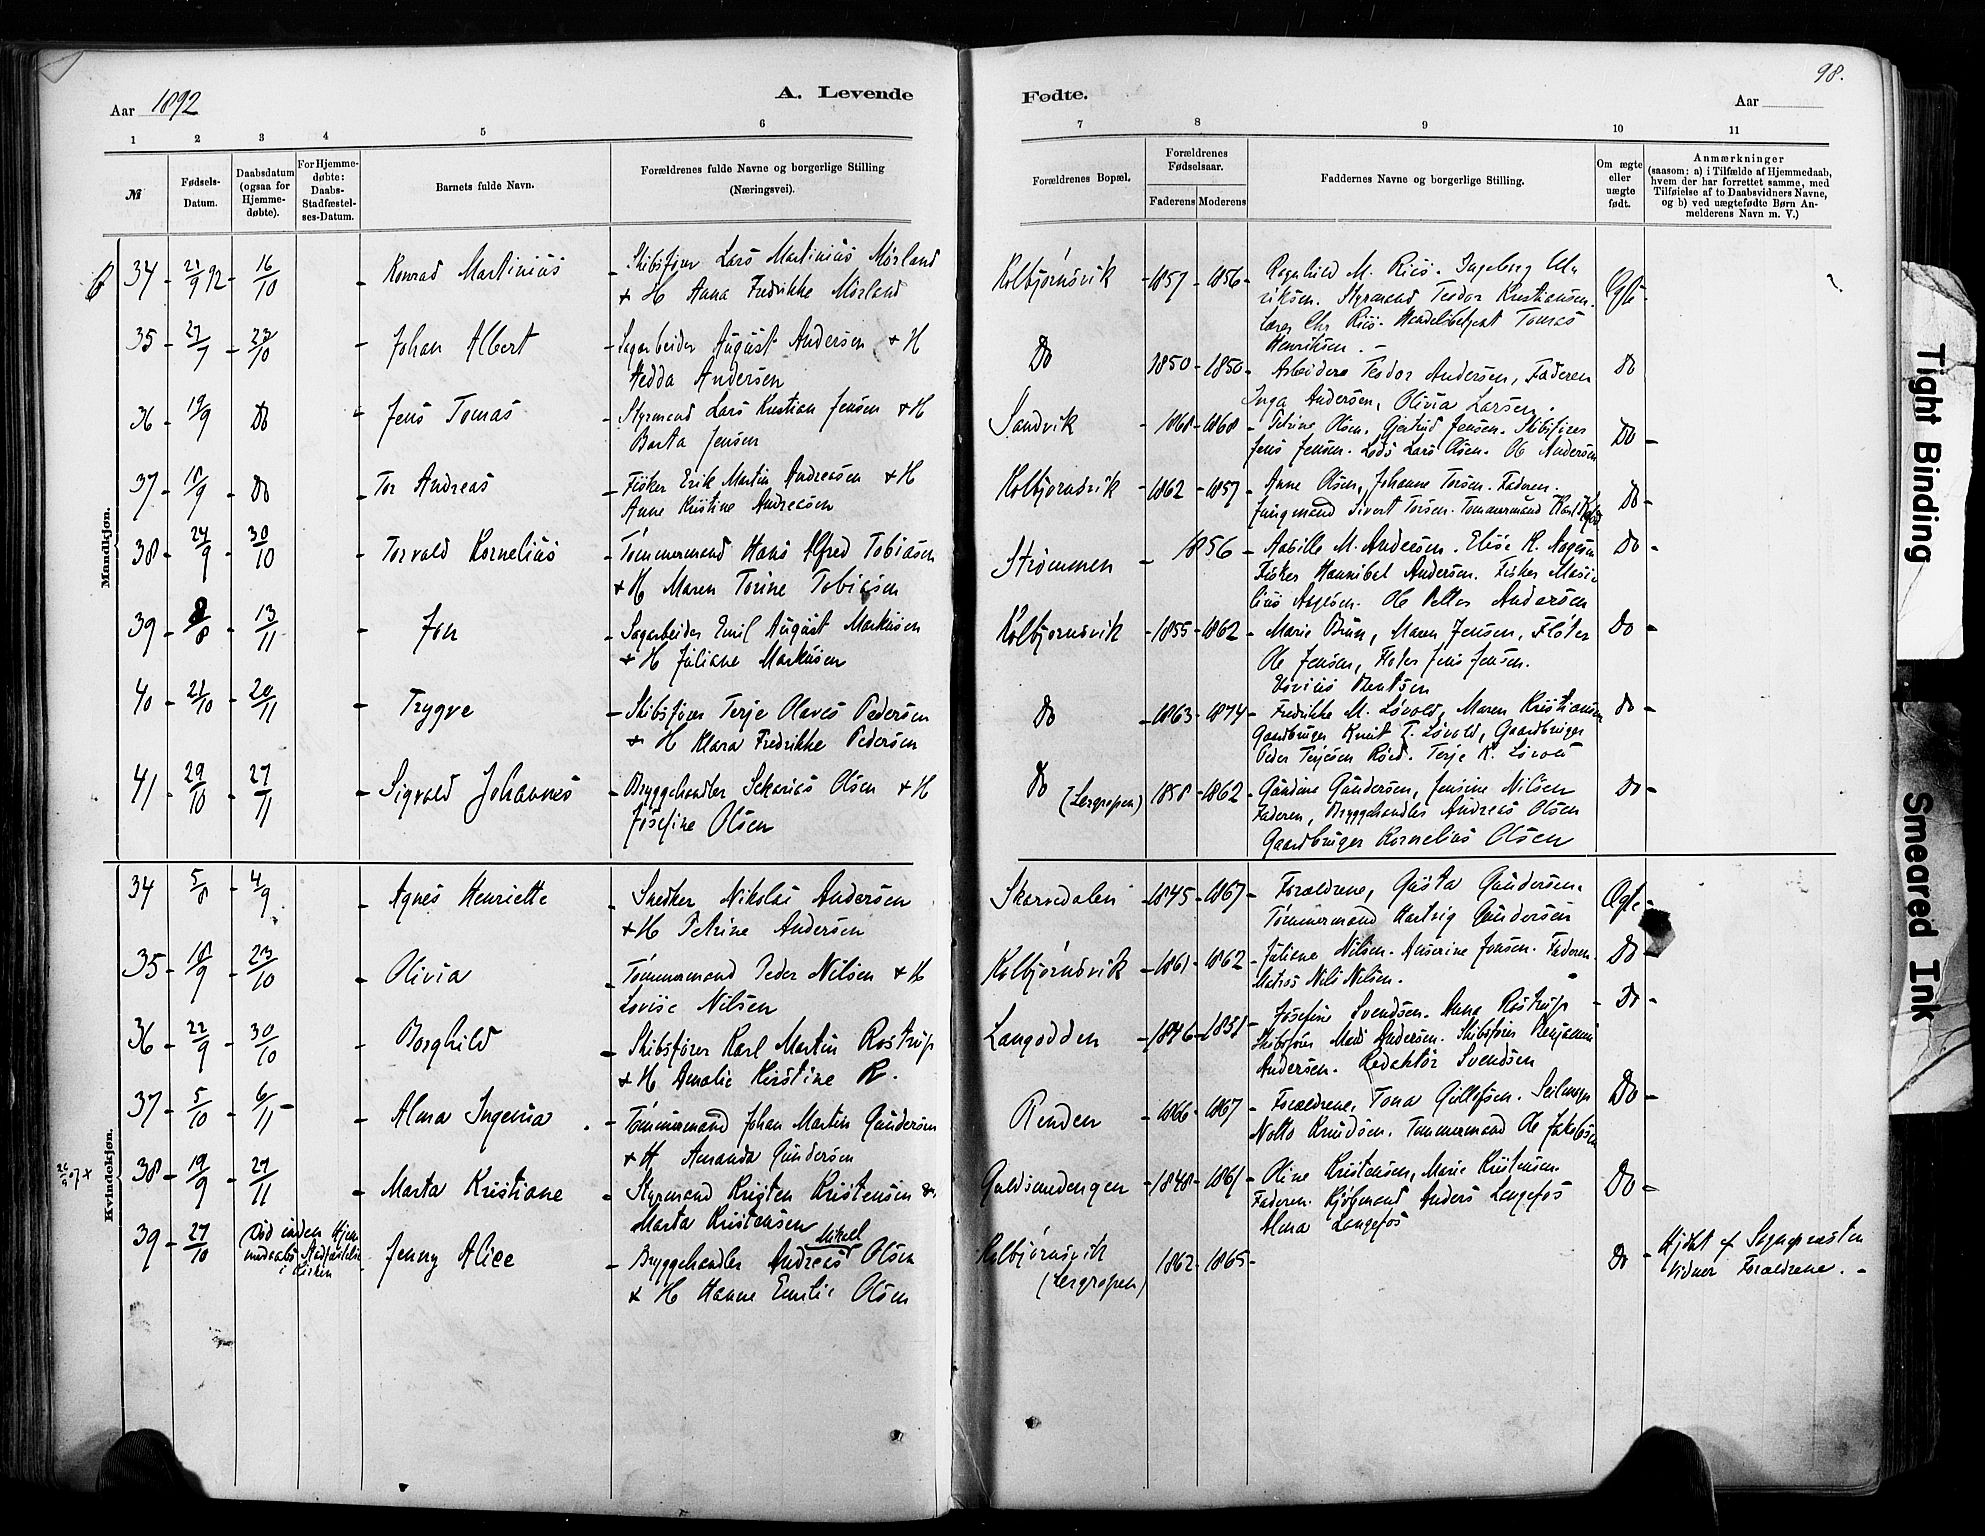 98.
Aar 1892
A. Levende
Fødte.
Aar
1 2 3 4 5 6
7 8 9 10 11
№
Fødsels-
Datum.
Daabsdatum
(ogsaa for
Hjemme-
døbte).
For Hjemme-
døbte:
Daabs-
Stadfæstel-
ses-Datum.
Barnets fulde Navn.
Forældrenes fulde Navne og borgerlige Stilling
(Næringsvei).
Forældrenes Bopæl.
Forældrenes
Fødselsaar.
Faderens Moderens
Faddernes Navne og borgerlige Stilling.
Om ægte
eller
uægte
født.
Anmærkninger
(saasom: a) i Tilfælde af Hjemmedaab,
hvem der har forrettet samme, med
Tilføielse af to Daabsvidners Navne,
og b) ved uægtefødte Børn An-
melderens Navn m. V.)
Mandkjøn.
34 - 21/9 92 - 16/10 - Konrad Martinius - Skibsfører Lars Martinius Mørland
+ H Anna Fredrikke Mørland
Kolbjørnsvik - 1857 - 1856 - Ragnhild M. Riis. Ingeborg Ul-
riksen. Styrmand Teodor Kristiansen.
Lærer Chr Riis. Handelsbetjent Tomas
Henriksen. -
Ægte -
35 - 27/9 - 23/10 - Johan Albert - Sagarbeider August Andersen + H
Hedda Andersen
Do 1850 - 1850 - Arbeidere Teodor Andersen, Faderen
Inga Andersen, Olivia Larsen.
Do
36 - 19/9 Do - Jens Tomas - Styrmand Lars Kristian Jensen + H
Berta Jensen
Sandvik - 1868 - 1868 - Petrine Olsen. Gjertrud Jensen. Skibsfører
Jens Jensen. Lods Lars Olsen. Ole Andersen
Do -
37 - 18/9 - Do - Tor Andreas - Fisker Erik Martin Andreasen + H
Anne Kristine Andreasen
Kolbjørnsvik - 1862 - 1857 - Anne Olsen, Johanne Torsen. Faderen.
Jungmand Sivert Torsen. Tømmermand Karl
Do -
38 - 24/9 - 30/10 - Torvald Kornelius - Tømmermand Hans Alfred Tobiasen
+ H Maren Torine Tobiasen
Strømmen - 1856 - M. Andersen. Elise K. Aagesen
Fisker Hannibal Andersen. Fisker
Ole Petter Andersen
Do -
39 - 8/8 - 13/11 - Jon - Sagarbeider Emil August Markusen
+ H Juliane Markusen
Kolbjørnsvik - 1855 - 1862 - Marie Brun, Maren Jensen, Fløter
Ole Jensen, Fløter Jens Jensen.
Bentsen
Do -
40 - 21/10 - 20/11 - Trygve - Skibsfører Terje Olaves Pedersen
+ H Klara Fredrikke Pedersen
Do - 1863 - 1874 - Fredrikke M. Løvold, Maren Kristiansen
Gaardbruger Knut T. Løvold, Gaardbruger
Peder Terjesen Røed. Terje K. Løvold
Do -
41 - 29/10 - 27/11 - Sigvald Johannes - Bryggehandler Sekarias Olsen + H
Josefine Olsen
Do (Lergropen) 1858 - 1862 - Gundine Gundersen, Jensine Nilsen
Faderen, Bryggehandler Andreas Olsen
Gaardbruger Kornelius Olsen
Do -
Kvindekjøn.
34 5/8 - 4/9 - Agnes Henriette - Snedker Nikolai Andersen
+ H Petrine Andersen
Skarvedalen - 1845 - 1867 - Forældrene, Gusta Gundersen.
Tømmermand Hartvig Gundersen
Ægte -
35 - 18/9 - 23/10 - Olivia - Tømmermand Peder Nilsen + H
Lovise Nilsen
Kolbjørnsvik - 1861 - 1862 - Juliane Nilsen. Anserine Jensen. Faderen.
Matros Nils Nilsen.
Do -
36 - 22/9 - 30/10 - Borghild - Skibsfører Karl Martin Rostrup
+ H Amalie Kirstine R.
Langodden - 1846 - 1851 - Josefine Svendsen. Anna Rostrup
Skibsfører Mads Andersen. Skibsfører Benjamin
Andersen. Redaktør Svendsen
Do -
37 - 5/10 - 6/11 - Alma Ingenia - Tømmermand Johan Martin Gundersen
+ H Amanda Gundersen
Renden - 1866 - 1867 - Forældrene, Tona Gullofsen. Seilmager
Notto Knudsen. Tømmermand Ole Jakobsen
Do -
38 - 19/9 - 27/11 - Marta Kristiane - Styrmand Kristen Kristensen &
Marta Kristensen
Guldsmedengen - 1848 - 1861 - Oline Kristensen, Marie Kristensen.
Faderen. Kjøbmand Anders Langefos
Alma Langefos
Do -
39 - 27/10 Død inden Hjem-
medaabs Stadfæstelse
i Kirken
- Jenny Alice - Bryggehandler Andreas Mikal Olsen
+ H Hanne Emilie Olsen
Kolbjørnsvik (Lergropen) 1862 - 1865 -
Do - Hjdbt af Sognepresten
Vidner Forældrene. -
Tight Binding
Smeared Ink